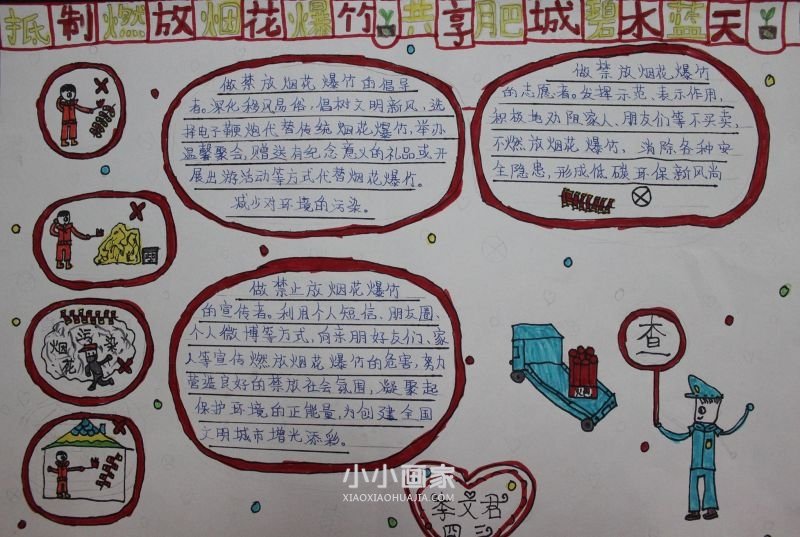 抵制燃放烟花爆竹共享肥城碧水蓝天
做禁放烟花爆竹的倡导
者。深化移风易俗，倡树文明新风，选
择电子鞭炮代替传统烟花爆竹，举办
温馨聚会，赠送有纪念意义的礼品或开
展出游活动等方式代替烟花爆竹。
减少对环境的污染。
做禁放烟花爆竹
的志愿者。发挥示范、表示作用，
积极地劝阻家人、朋友们等不买卖，
不燃放烟花爆竹、消除各种安
全隐患，形成低碳环保新风尚
做禁止放烟花爆竹
的宣传者。利用个人短信、朋友圈、
个人微博等方式，向亲朋好友们、家
人等宣传燃放烟花爆竹的危害，努力
营造良好的禁放社会氛围，凝聚起
保护环境的正能量，为创建全国
文明城市增光添彩。
烟花污染
查
李文君
四三
小小画家
XIAOXIAOHUAJIA.COM